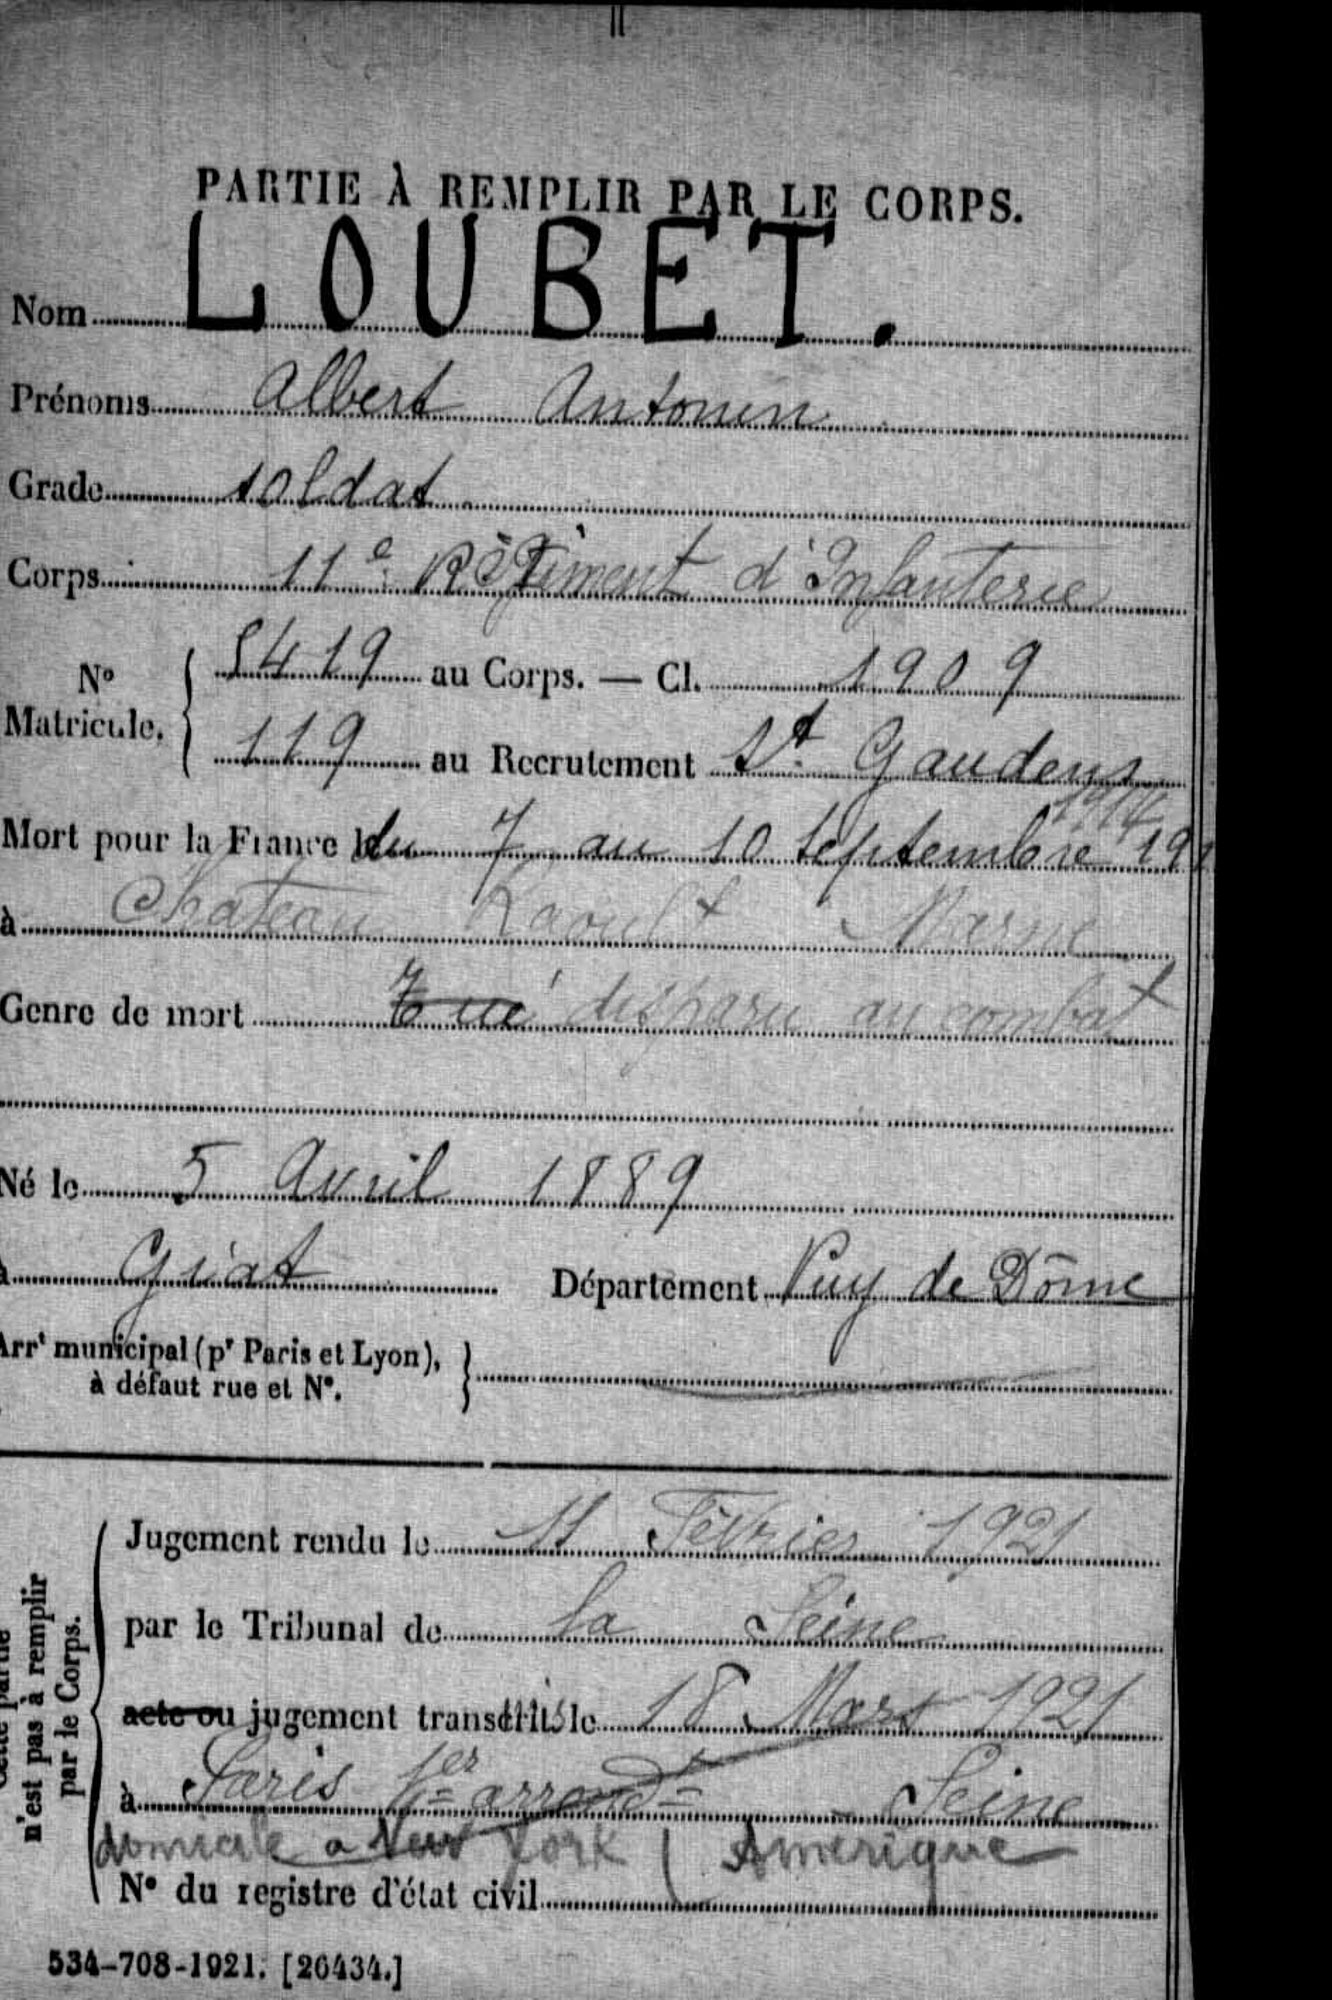 PARTIE À REMPLIR PAR LE CORPS.
Nom LOUBET.
Prénoms Albert Antonin
Grade soldat
Corps 11e Régiment d'Infanterie
No Matricule. { 5419 au Corps. — Cl. 1909
119 au Recrutement St Gaudens
1914
Mort pour la France du 7 au 10 Septembre 19
à Chateau Raoult Marne
Genre de mort Tué disparu au combat
Né le 5 Avril 1889
à Giat Département Puy de Dôme
Arrt municipal (pr Paris et Lyon), à défaut rue et No. }
Cette partie n'est pas à remplir par le Corps.
Jugement rendu le 11 Février 1921
par le Tribunal de la Seine
acte ou jugement transcrit le 18 Mars 1921
à Paris 1er arrondt Seine
domicile a New York (Amérique
No du registre d'état civil
534-708-1921. [26434.]